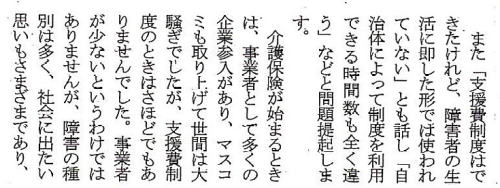 また「支援費制度はで
きたけれど、障害者の生
活に即した形では使われ
ていない」とも話し「自
治体によって制度を利用
できる時間数も全く違
う」などと問題提起しま
す。
介護保険が始まるとき
は、事業者として多くの
企業参入があり、マスコ
ミも取り上げて世間は大
騒ぎでしたが、支援費制
度のときはさほどでもあ
りませんでした。事業者
が少ないというわけでは
ありませんが、障害の種
別は多く、社会に出たい
思いもさまざまであり、